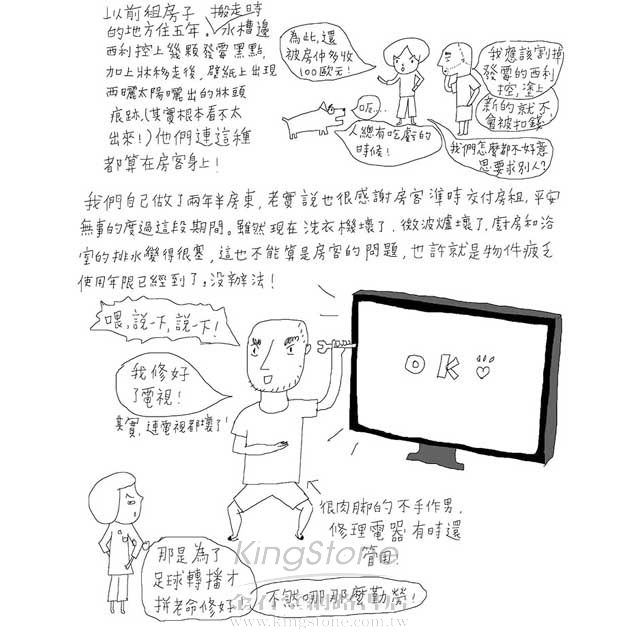 以前租房子 搬走時
的地方住五年。水槽邊
西利控上幾顆發霉黑點,
加上牀移走後,壁紙上出現
西曬太陽曬出的牀頭
痕跡,(其實根本看不太
出來!)他們連這種
都算在房客身上!
為此,還
被房仲多收
100歐元!
我應該割掉
發霉的西利
控,塗上
新的就不
會被扣錢
呃...
人總有吃虧的
時候!
我們怎麼都不好意
思要求別人?
我們自己做了兩年半房東,老實說也很感謝房客準時交付房租,平安
無事的度過這段期間。雖然現在洗衣機壞了.微波爐壞了.廚房和浴
室的排水變得很塞,這也不能算是房客的問題,也許就是物件疲乏
使用年限已經到了。沒辦法!
喂,說一下,說一下!
我修好
了電視!
其實,連電視都壞了!
OK
很肉腳的不手作男,
修理電器有時還
管用
那是為了
足球轉播才
拼老命修好
不然哪那麼勤勞!
KingStone
www.kingstone.com.tw